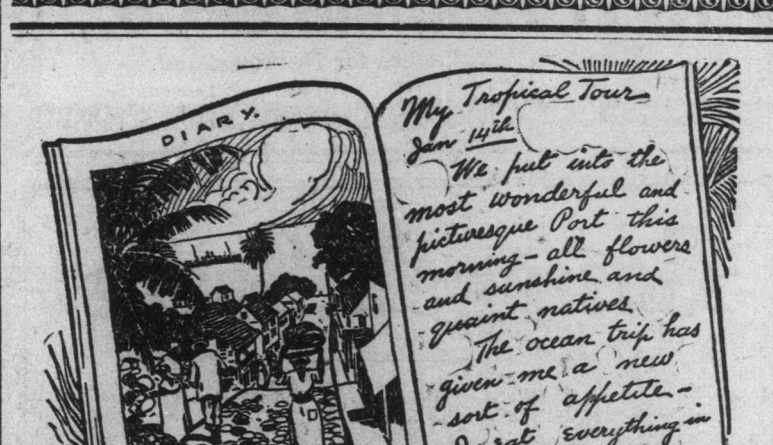 DIARY.
My Tropical Tour
Jan 14th
We put into the
most wonderful and
picturesque Port this
morning - all flowers
and sunshine and
quaint natives
The ocean trip has
given me a new
sort of appetite -
I eat everything in